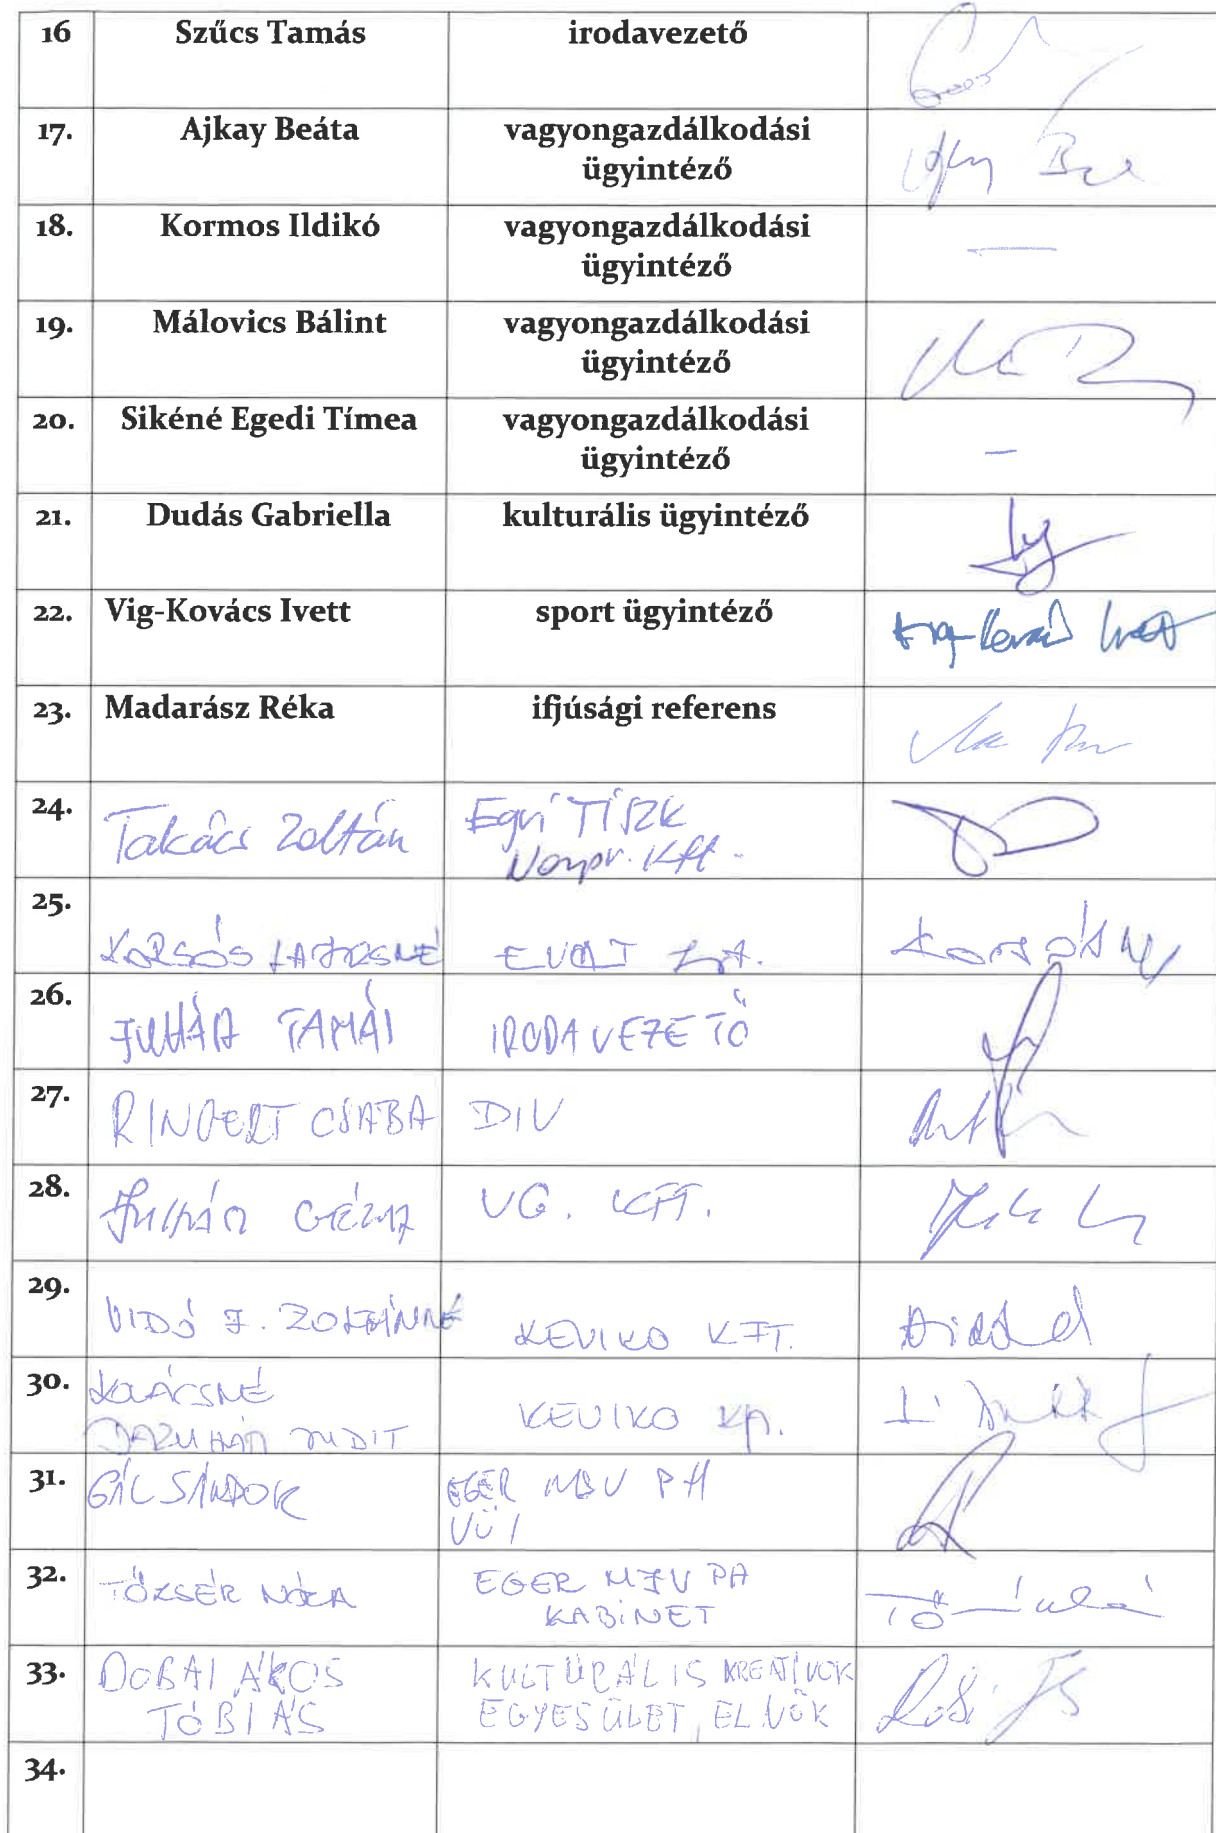 16 Szűcs Tamás irodavezető
17. Ajkay Beáta vagyongazdálkodási
ügyintéző
18. Kormos Ildikó vagyongazdálkodási
ügyintéző
19. Málovics Bálint vagyongazdálkodási
ügyintéző
20. Sikéné Egedi Tímea vagyongazdálkodási
ügyintéző
21. Dudás Gabriella kulturális ügyintéző
22. Vig-Kovács Ivett sport ügyintéző
23. Madarász Réka ifjúsági referens
24. Takács Zoltán Egri TISZK
Nonpr. Kft.
25.
KORSÓS LAJOSNÉ EVAT Zrt.
26.
JUHÁSZ TAMÁS IRODAVEZETŐ
27. RINGERT CSABA DIV
28. Juhász Géza VG. KFT.
29.
VIDÓ J. ZOLTÁNNÉ KEVIKO KFT.
30. KOVÁCSNÉ
JUDIT KEVIKO Kft.
31. GÁL SÁNDOR EGER MJV PH
VÜI
32. TŐZSÉR NÓRA EGER MJV PH
KABINET
33. DOBAI ÁKOS KULTURÁLIS KREATÍVOK
TÓBIÁS EGYESÜLET, ELNÖK
34.